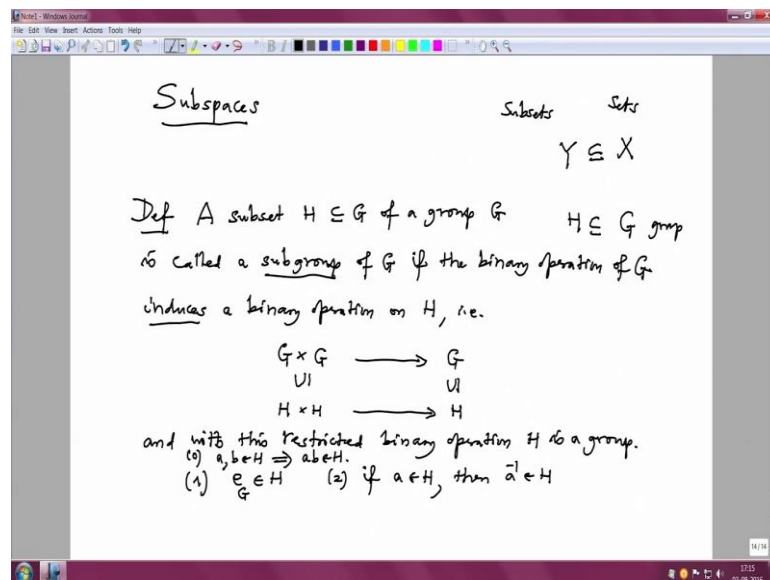 Note1 - Windows Journal
File Edit View Insert Actions Tools Help
Subspaces
Subsets Sets
Y ⊆ X
Def A subset H ⊆ G of a group G H ⊆ G group
is called a subgroup of G if the binary operation of G
induces a binary operation on H, i.e.
G × G ⟶ G
UI UI
H × H ⟶ H
and with this restricted binary operation H is a group.
(0) a, b ∈ H ⟹ ab ∈ H.
(1) e_G ∈ H (2) if a ∈ H, then a⁻¹ ∈ H
14/14
17:15